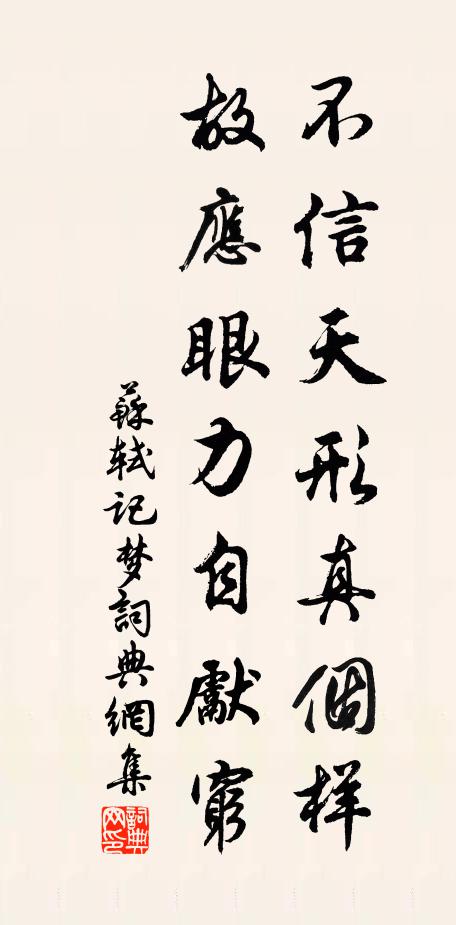 不信天形真個样
故應眼力自獻窮
蘇軾记梦詞典網集
詞典
网印